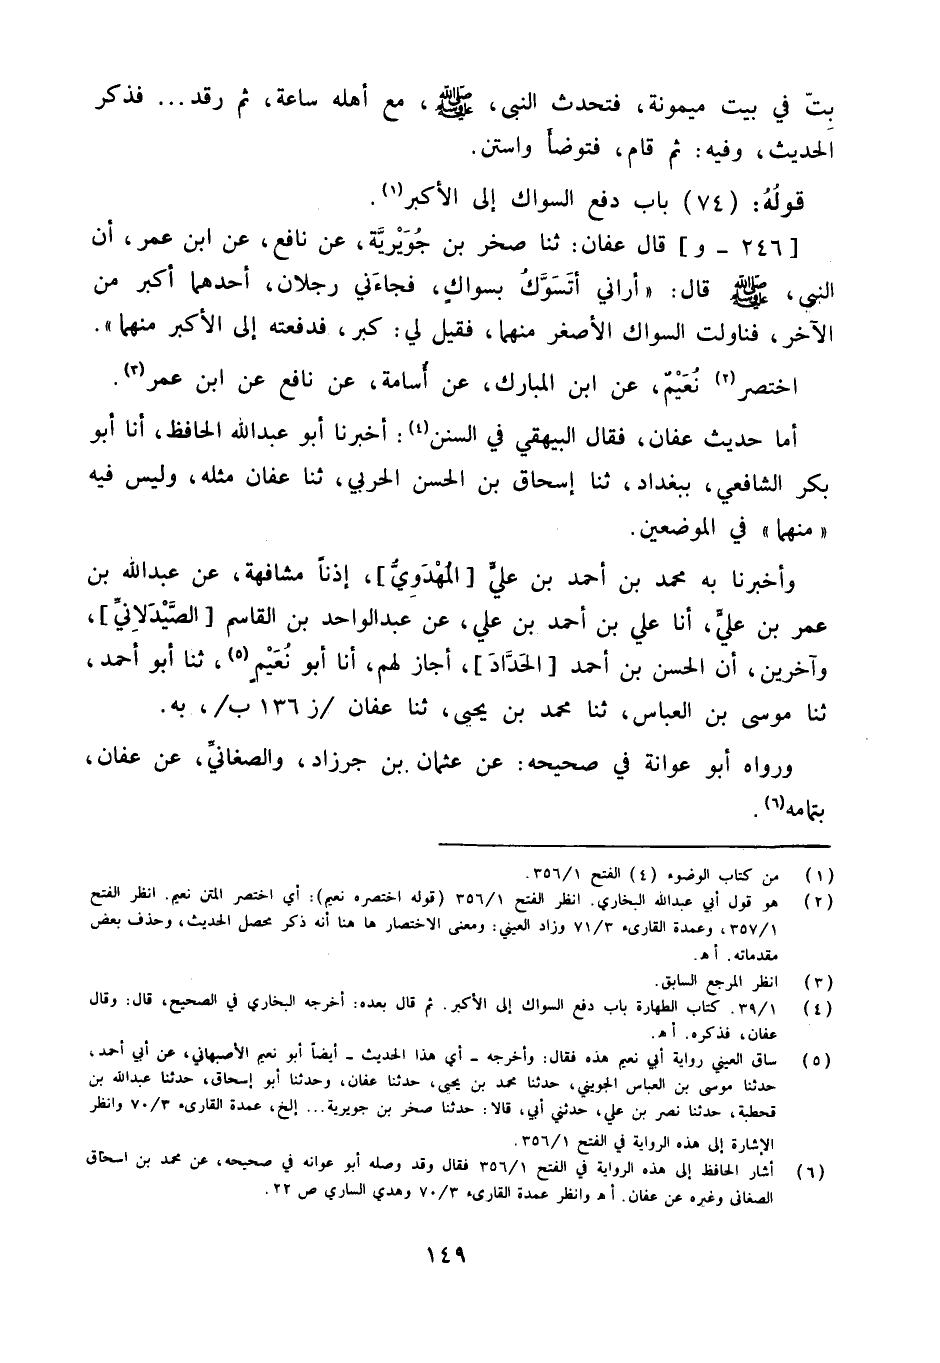 بِتّ في بيت ميمونة، فتحدث النبي، ﷺ، مع أهله ساعة، ثم رقد... فذكر
الحديث، وفيه: ثم قام، فتوضأ واستن.
قولُهُ: (٧٤) باب دفع السواك إلى الأكبر(١).
[٢٤٦ - و] قال عفان: ثنا صخر بن جُوَيْرِيَّة، عن نافع، عن ابن عمر، أن
النبي، ﷺ قال: «أراني أتَسَوَّكُ بسواكٍ، فجاءَني رجلان، أحدهما أكبر من
الآخر، فناولت السواك الأصغر منهما، فقيل لي: كبر، فدفعته إلى الأكبر منهما».
اختصر(٢) نُعَيْمٌ، عن ابن المبارك، عن أُسامة، عن نافع عن ابن عمر(٣).
أما حديث عفان، فقال البيهقي في السنن(٤): أخبرنا أبو عبدالله الحافظ، أنا أبو
بكر الشافعي، ببغداد، ثنا إسحاق بن الحسن الحربي، ثنا عفان مثله، وليس فيه
«منهما» في الموضعين.
وأخبرنا به محمد بن أحمد بن عليٍّ [المُهْدَوِيُّ]، إذناً مشافهة، عن عبدالله بن
عمر بن عليٍّ، أنا علي بن أحمد بن علي، عن عبدالواحد بن القاسم [الصَّيْدَلانيِّ]،
وآخرين، أن الحسن بن أحمد [الحَدَّادَ]، أجاز لهم، أنا أبو نُعَيْمٍ(٥)، ثنا أبو أحمد،
ثنا موسى بن العباس، ثنا محمد بن يحيى، ثنا عفان /ز ١٣٦ ب/، به.
ورواه أبو عوانة في صحيحه: عن عثمان بن جرزاد، والصغانيِّ، عن عفان،
بتمامه(٦).
(١) من كتاب الوضوء (٤) الفتح ٣٥٦/١.
(٢) هو قول أبي عبدالله البخاري. انظر الفتح ٣٥٦/١ (قوله اختصره نعيم): أي اختصر المتن نعيم. انظر الفتح
٣٥٧/١، وعمدة القارىء ٧١/٣ وزاد العيني: ومعنى الاختصار ها هنا أنه ذكر محصل الحديث، وحذف بعض
مقدماته. أ هـ.
(٣) انظر المرجع السابق.
(٤) ٣٩/١. كتاب الطهارة باب دفع السواك إلى الأكبر. ثم قال بعده: أخرجه البخاري في الصحيح، قال: وقال
عفان، فذكره. أ هـ.
(٥) ساق العيني رواية أبي نعيم هذه فقال: وأخرجه - أي هذا الحديث - أيضاً أبو نعيم الأصبهاني، عن أبي أحمد،
حدثنا موسى بن العباس الجويني، حدثنا محمد بن يحيى، حدثنا عفان، وحدثنا أبو إسحاق، حدثنا عبدالله بن
قحطبة، حدثنا نصر بن علي، حدثني أبي، قالا: حدثنا صخر بن جويرية... إلخ، عمدة القارىء ٧٠/٣ وانظر
الإشارة إلى هذه الرواية في الفتح ٣٥٦/١.
(٦) أشار الحافظ إلى هذه الرواية في الفتح ٣٥٦/١ فقال وقد وصله أبو عوانه في صحيحه، عن محمد بن اسحاق
الصغانى وغيره عن عفان. أ هـ وانظر عمدة القارىء ٧٠/٣ وهدي الساري ص ٢٢.
١٤٩